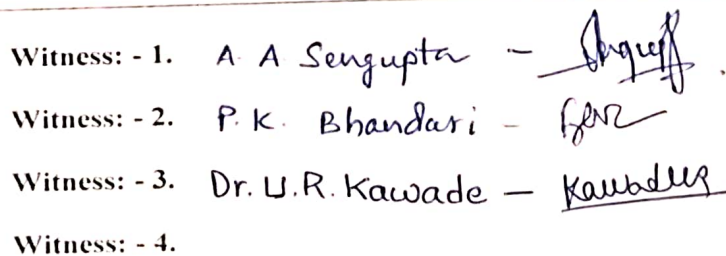 Witness: - 1. A. A Sengupta -
Witness: - 2. P. K. Bhandari -
Witness: - 3. Dr. U.R. Kawade - Kawade
Witness: - 4.